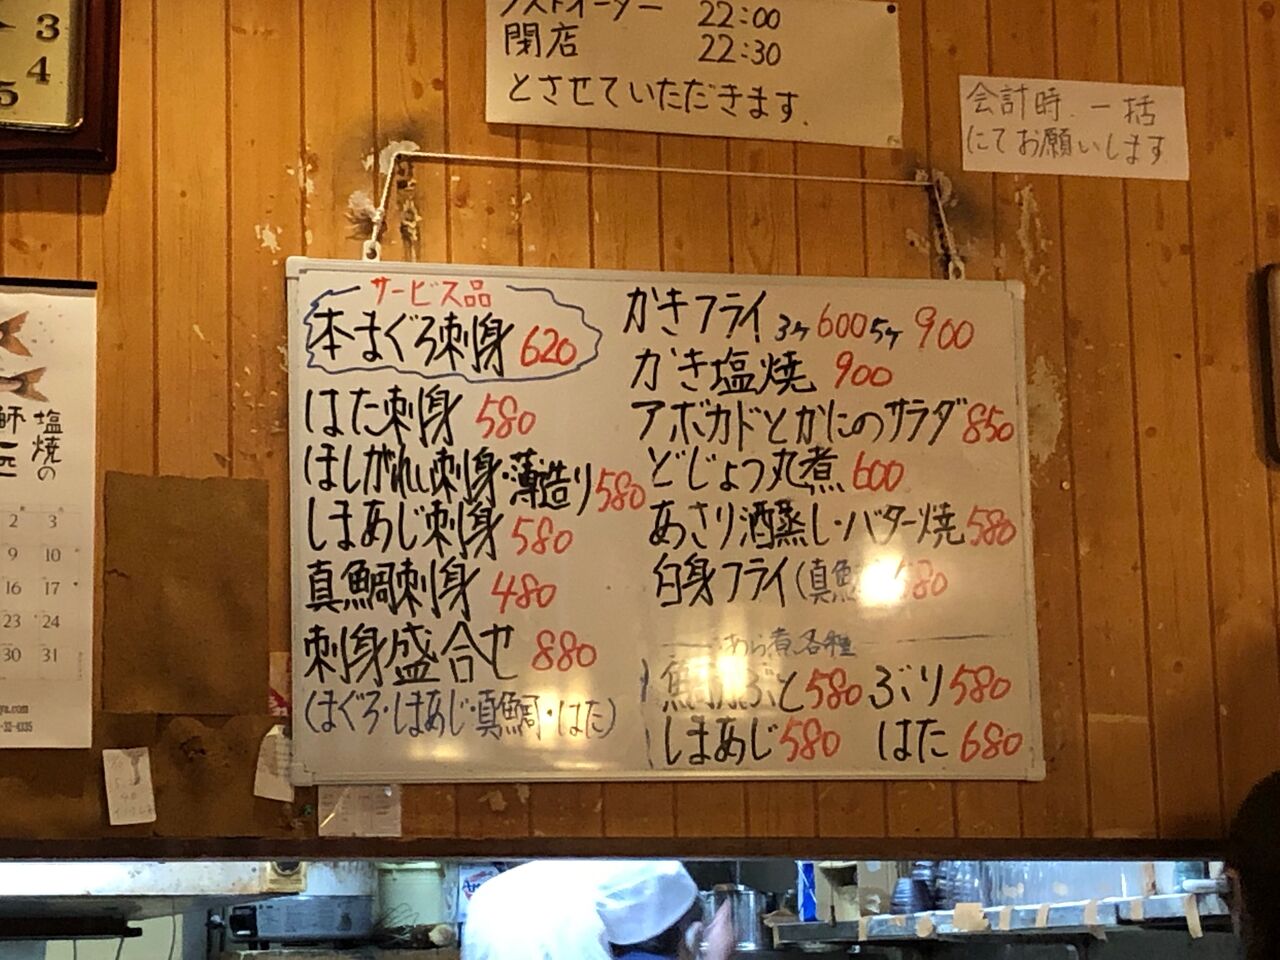 3
4
5
ラストオーダー 22:00
閉店 22:30
とさせていただきます.
会計時、一括
にてお願いします
サービス品
本まぐろ刺身 620
はた刺身 580
ほしがれい刺身・薄造り 580
しまあじ刺身 580
真鯛刺身 480
刺身盛合せ 880
(まぐろ・しまあじ・真鯛・はた)
かきフライ 3ヶ 600 5ヶ 900
かき塩焼 900
アボカドとかにのサラダ 850
どじょう丸煮 600
あさり酒蒸し・バター焼 580
白身フライ(真鯛) 580
あら煮各種
鯛かぶと 580 ぶり 580
しまあじ 580 はた 680
塩焼の
師一匹
2 3
9 10
16 17
23 24
30 31